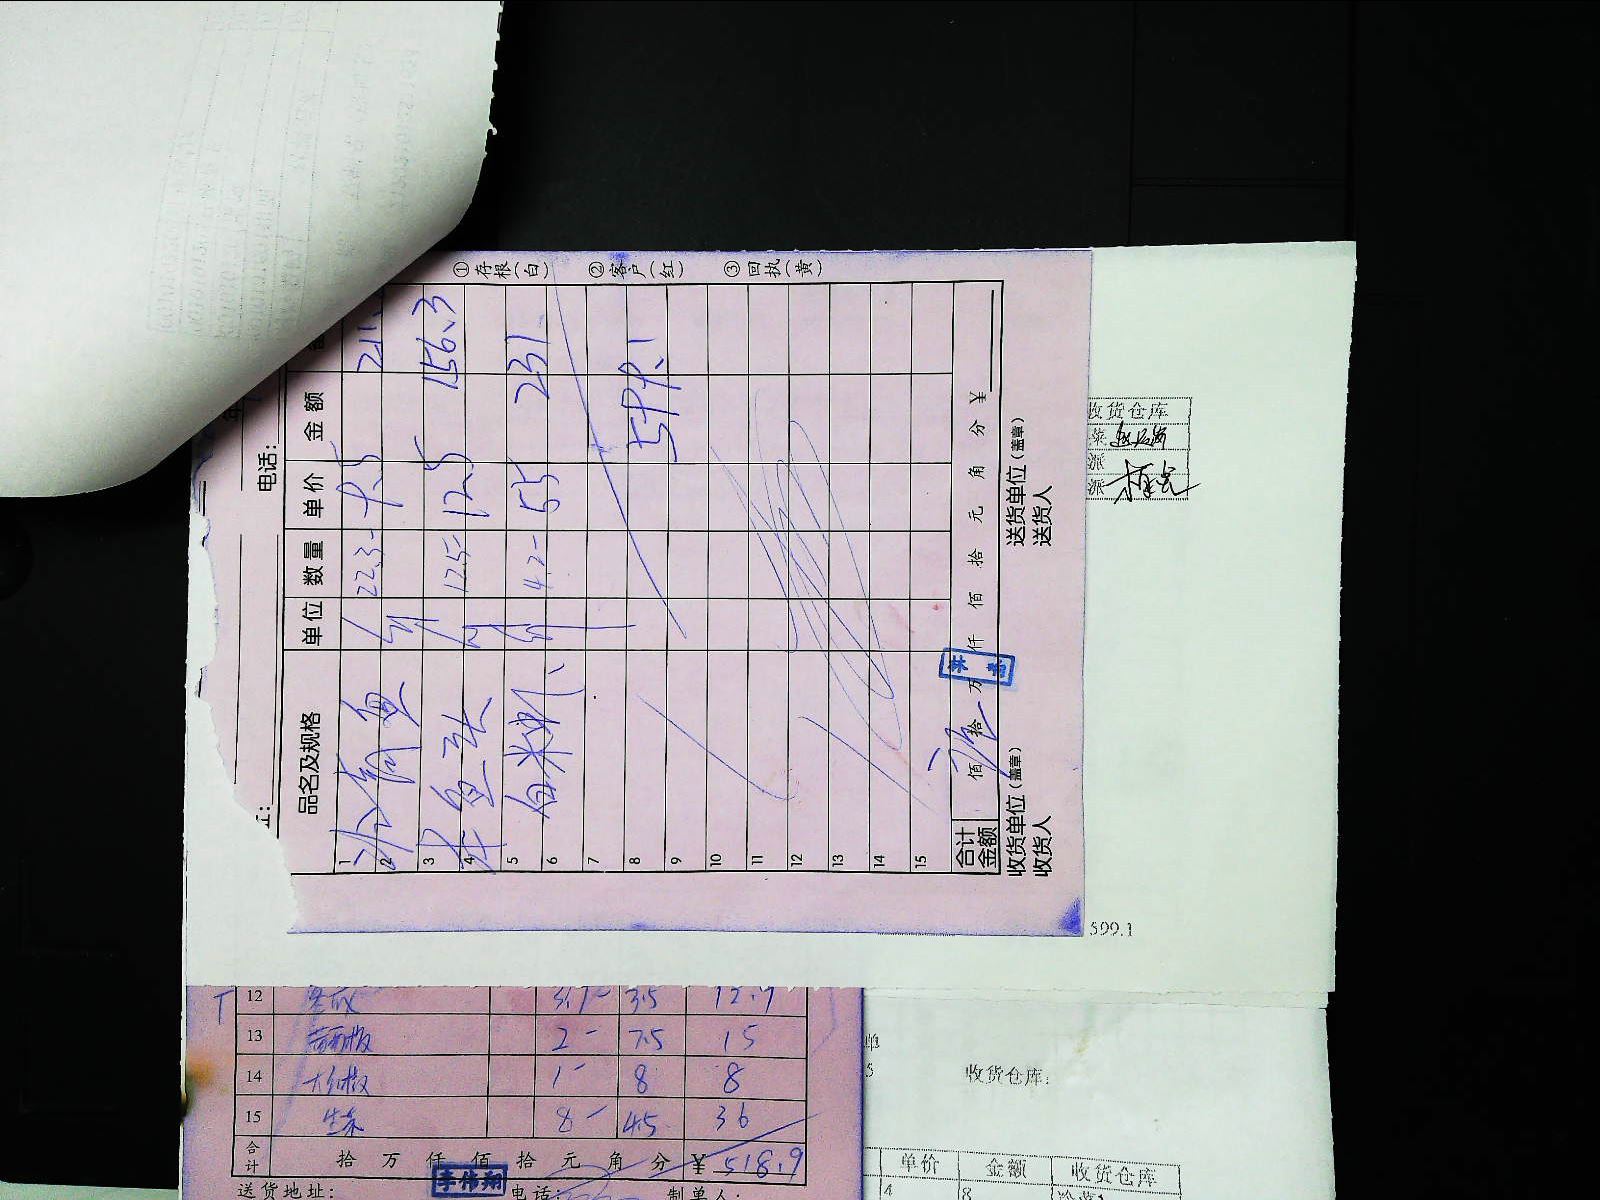 ①存根（白） ②客户（红） ③回执（黄）
电话：
品名及规格 单位 数量 单价 金额
1 鱼 斤 22.3- 9.5 211.
2
3 鱼头 斤 12.5- 12.5 156.3
4
5 白米虾 斤 4.2- 55 231
6
7
8 599.1
9
10
11
12
13
14
15
合计金额 佰 拾 万 仟 佰 拾 元 角 分 ¥
收货单位（盖章） 送货单位（盖章）
收货人 送货人
收货仓库
菜
派
派
599.1
12 3.7- 3.5 12.9
13 2- 7.5 15
14 1- 8 8
15 生菜 8- 4.5 36
合计 拾 万 仟 佰 拾 元 角 分 ¥ 518.9
李伟翔
送货地址： 电话： 制单人：
单
5 收货仓库：
单价 金额 收货仓库
4 8